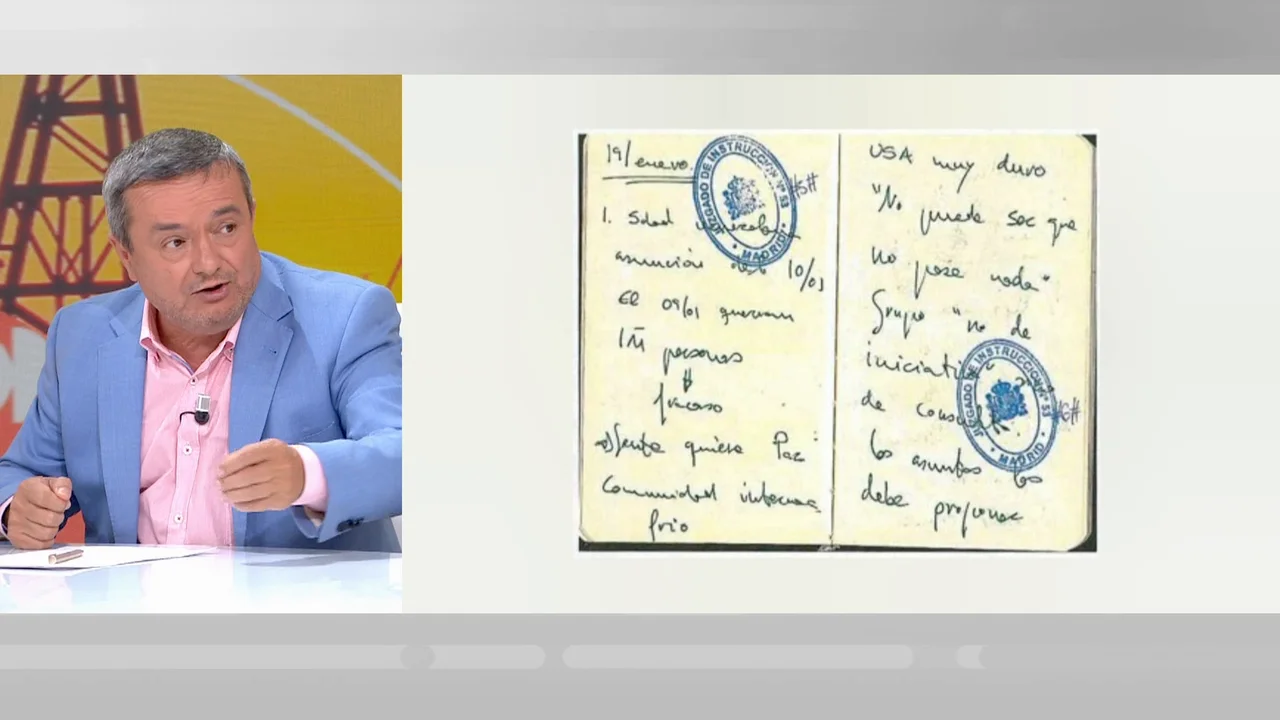 19/enero.
1. Sdad
asunción 10/01
El 09/01 querian
1M personas
fracaso
Gente quiere Paz
Comunidad internac
frio
USA muy duro
"No puede ser que
no pase nada"
Grupo "no de
iniciati
de consul
los asuntos los
debe proponer
JUZGADO DE INSTRUCCIÓN Nº 53
MADRID
#5#
JUZGADO DE INSTRUCCIÓN Nº 53
MADRID
#6#